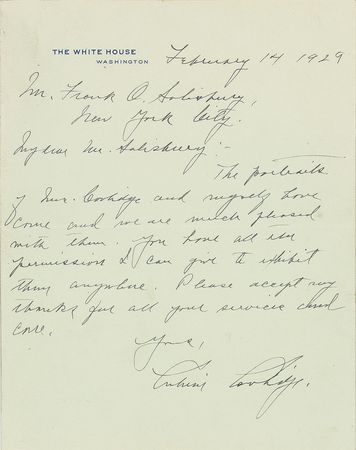 THE WHITE HOUSE
WASHINGTON
February 14 1929
Mr. Frank O. Salisbury,
New York City.
My dear Mr. Salisbury:-
The portraits
of Mrs. Coolidge and myself have
come and we are much pleased
with them. You have all the
permission I can give to exhibit
them anywhere. Please accept my
thanks for all your services and
care.
Yours,
Calvin Coolidge.